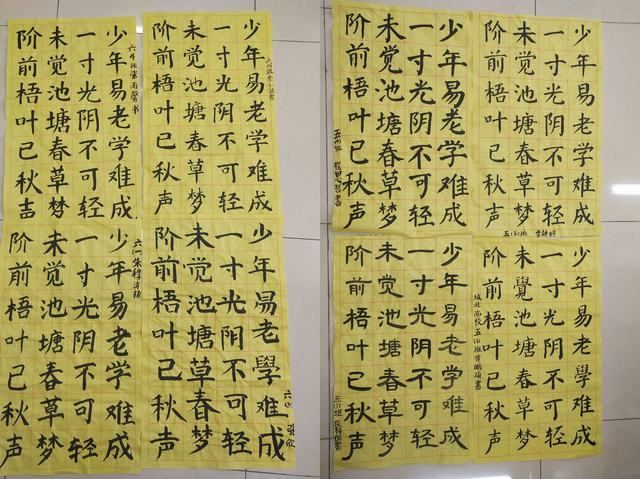 少年易老学难成
一寸光阴不可轻
未觉池塘春草梦
阶前梧叶已秋声
少年易老学难成
一寸光阴不可轻
未觉池塘春草梦
阶前梧叶已秋声
少年易老學难成
一寸光阴不可轻
未觉池塘草春梦
阶前梧叶已秋声
六(一)
少年易老学难成
一寸光阴不可轻
未觉池塘春草梦
阶前梧叶已秋声
少年易老学难成
一寸光阴不可轻
未觉池塘春草梦
阶前梧叶已秋声
少年易老学难成
一寸光阴不可轻
未觉池塘春草梦
阶前梧叶已秋声
少年易老學难成
一寸光阴不可轻
未覺池塘春草梦
阶前梧叶已秋声
少年易老学难成
一寸光阴不可轻
未觉池塘春草梦
阶前梧叶已秋声